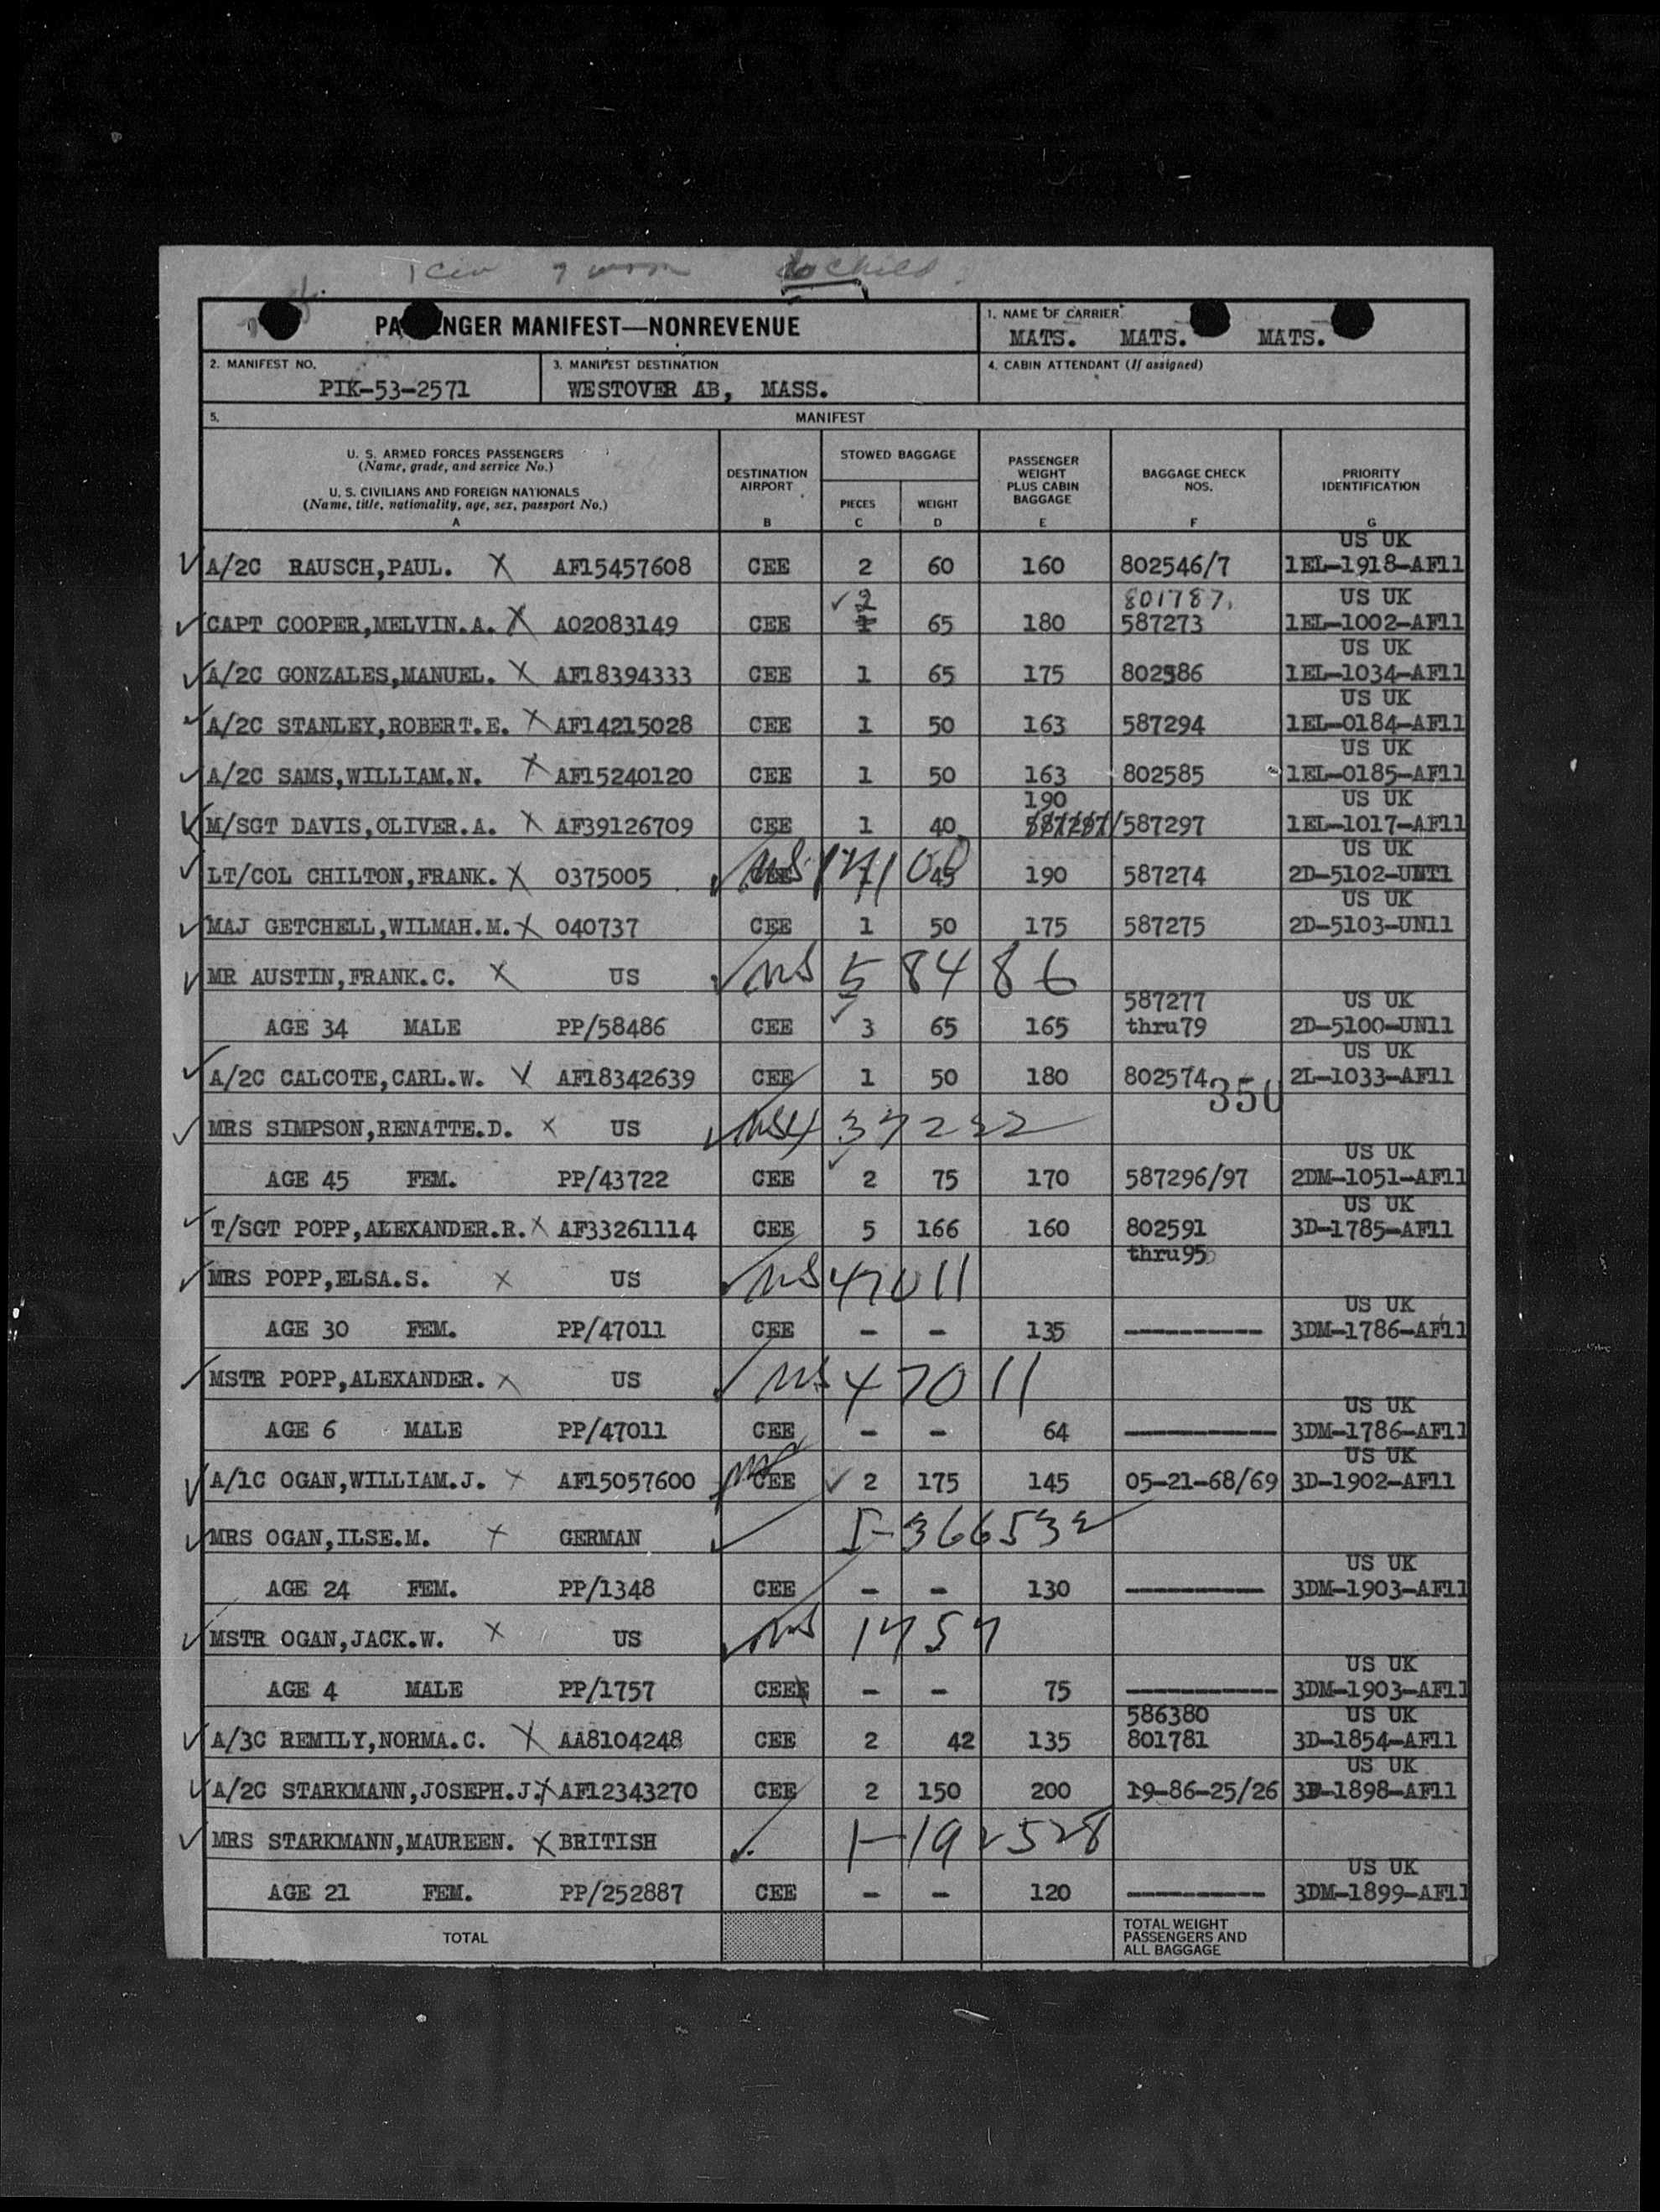 1 civ 7 wom child
PASSENGER MANIFEST—NONREVENUE
1. NAME OF CARRIER
MATS. MATS. MATS.
2. MANIFEST NO.
PIK-53-2571
3. MANIFEST DESTINATION
WESTOVER AB, MASS.
4. CABIN ATTENDANT (If assigned)
5. MANIFEST
U. S. ARMED FORCES PASSENGERS
(Name, grade, and service No.)
U. S. CIVILIANS AND FOREIGN NATIONALS
(Name, title, nationality, age, sex, passport No.)
A
DESTINATION
AIRPORT
B
STOWED BAGGAGE
PIECES
C
WEIGHT
D
PASSENGER
WEIGHT
PLUS CABIN
BAGGAGE
E
BAGGAGE CHECK
NOS.
F
PRIORITY
IDENTIFICATION
G
US UK
✓ A/2C RAUSCH,PAUL. X AF15457608 CEE 2 60 160 802546/7 1EL-1918-AF11
✓ 2 801787, US UK
✓ CAPT COOPER,MELVIN.A. X AO2083149 CEE 1 65 180 587273 1EL-1002-AF11
US UK
✓ A/2C GONZALES,MANUEL. X AF18394333 CEE 1 65 175 802586 1EL-1034-AF11
US UK
✓ A/2C STANLEY,ROBERT.E. X AF14215028 CEE 1 50 163 587294 1EL-0184-AF11
US UK
✓ A/2C SAMS,WILLIAM.N. X AF15240120 CEE 1 50 163 802585 1EL-0185-AF11
190 US UK
✓ M/SGT DAVIS,OLIVER.A. X AF39126709 CEE 1 40 587297/587297 1EL-1017-AF11
US UK
✓ LT/COL CHILTON,FRANK. X 0375005 ✓ CEE 1 45 190 587274 2D-5102-UN11
US UK
✓ MAJ GETCHELL,WILMAH.M. X 040737 CEE 1 50 175 587275 2D-5103-UN11
✓ MR AUSTIN,FRANK.C. X US ✓ US 58486
587277 US UK
AGE 34 MALE PP/58486 CEE ✓ 3 65 165 thru79 2D-5100-UN11
US UK
✓ A/2C CALCOTE,CARL.W. X AF18342639 CEE 1 50 180 802574 2L-1033-AF11
350
✓ MRS SIMPSON,RENATTE.D. X US ✓ US 437222
US UK
AGE 45 FEM. PP/43722 CEE ✓ 2 75 170 587296/97 2DM-1051-AF11
US UK
✓ T/SGT POPP,ALEXANDER.R. X AF33261114 CEE 5 166 160 802591 3D-1785-AF11
thru95
✓ MRS POPP,ELSA.S. X US ✓ US 47011
US UK
AGE 30 FEM. PP/47011 CEE - - 135 ---------- 3DM-1786-AF11
✓ MSTR POPP,ALEXANDER. X US ✓ US 47011
US UK
AGE 6 MALE PP/47011 CEE - - 64 ----------- 3DM-1786-AF11
US UK
✓ A/1C OGAN,WILLIAM.J. X AF15057600 CEE ✓ 2 175 145 05-21-68/69 3D-1902-AF11
✓ MRS OGAN,ILSE.M. X GERMAN ✓ I-366532
US UK
AGE 24 FEM. PP/1348 CEE - - 130 ---------- 3DM-1903-AF11
✓ MSTR OGAN,JACK.W. X US ✓ US 1757
US UK
AGE 4 MALE PP/1757 CEE - - 75 ----------- 3DM-1903-AF11
586380 US UK
✓ A/3C REMILY,NORMA.C. X AA8104248 CEE 2 42 135 801781 3D-1854-AF11
US UK
✓ A/2C STARKMANN,JOSEPH.J. X AF12343270 CEE 2 150 200 19-86-25/26 3D-1898-AF11
✓ MRS STARKMANN,MAUREEN. X BRITISH ✓ 1-192528
US UK
AGE 21 FEM. PP/252887 CEE - - 120 ---------- 3DM-1899-AF11
TOTAL
TOTAL WEIGHT
PASSENGERS AND
ALL BAGGAGE